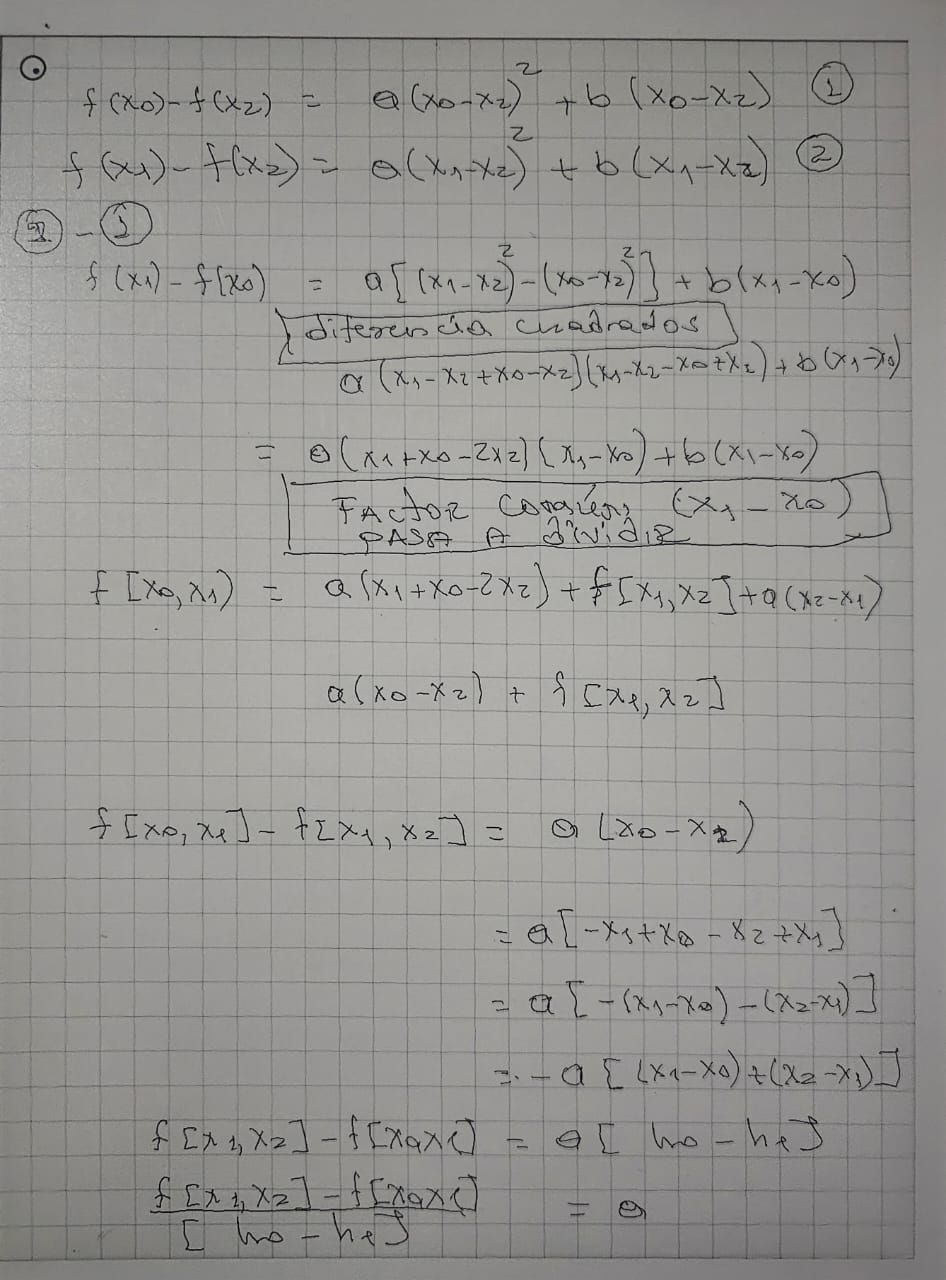 f(x0)-f(x2) = a(x0-x2)² + b(x0-x2) ①
f(x1)-f(x2) = a(x1-x2)² + b(x1-x2) ②
② - ①
f(x1)-f(x0) = a[(x1-x2)²-(x0-x2)²] + b(x1-x0)
diferencia cuadrados
a(x1-x2+x0-x2)(x1-x2-x0+x2)+b(x1-x0)
= a(x1+x0-2x2)(x1-x0)+b(x1-x0)
FACTOR Común (x1-x0)
PASA A dividir
f[x0,x1) = a(x1+x0-2x2)+f[x1,x2]+a(x2-x1)
a(x0-x2) + f[x1,x2]
f[x0,x1]-f[x1,x2] = a(x0-x2)
= a[-x1+x0-x2+x1]
= a[-(x1-x0)-(x2-x1)]
= -a[(x1-x0)+(x2-x1)]
f[x1,x2]-f[x0x1] = a[h0-h1]
f[x1,x2]-f[x0x1] = a
[h0-h1]